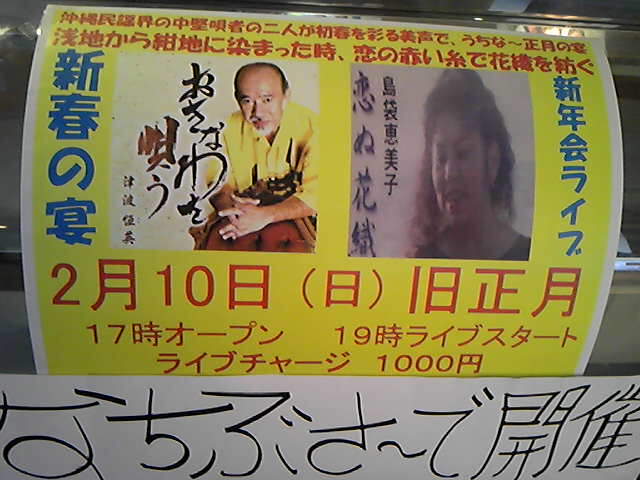 沖縄民謡界の中堅唄者の二人が初春を彩る美声で、うちな〜正月の宴
浅地から紺地に染まった時、恋の赤い糸で花織を紡ぐ
新春の宴
おきなわを
唄う
津波恒英
島袋恵美子
恋ぬ花織
新年会ライブ
2月10日(日)旧正月
17時オープン 19時ライブスタート
ライブチャージ 1000円
なちぶさ〜で開催